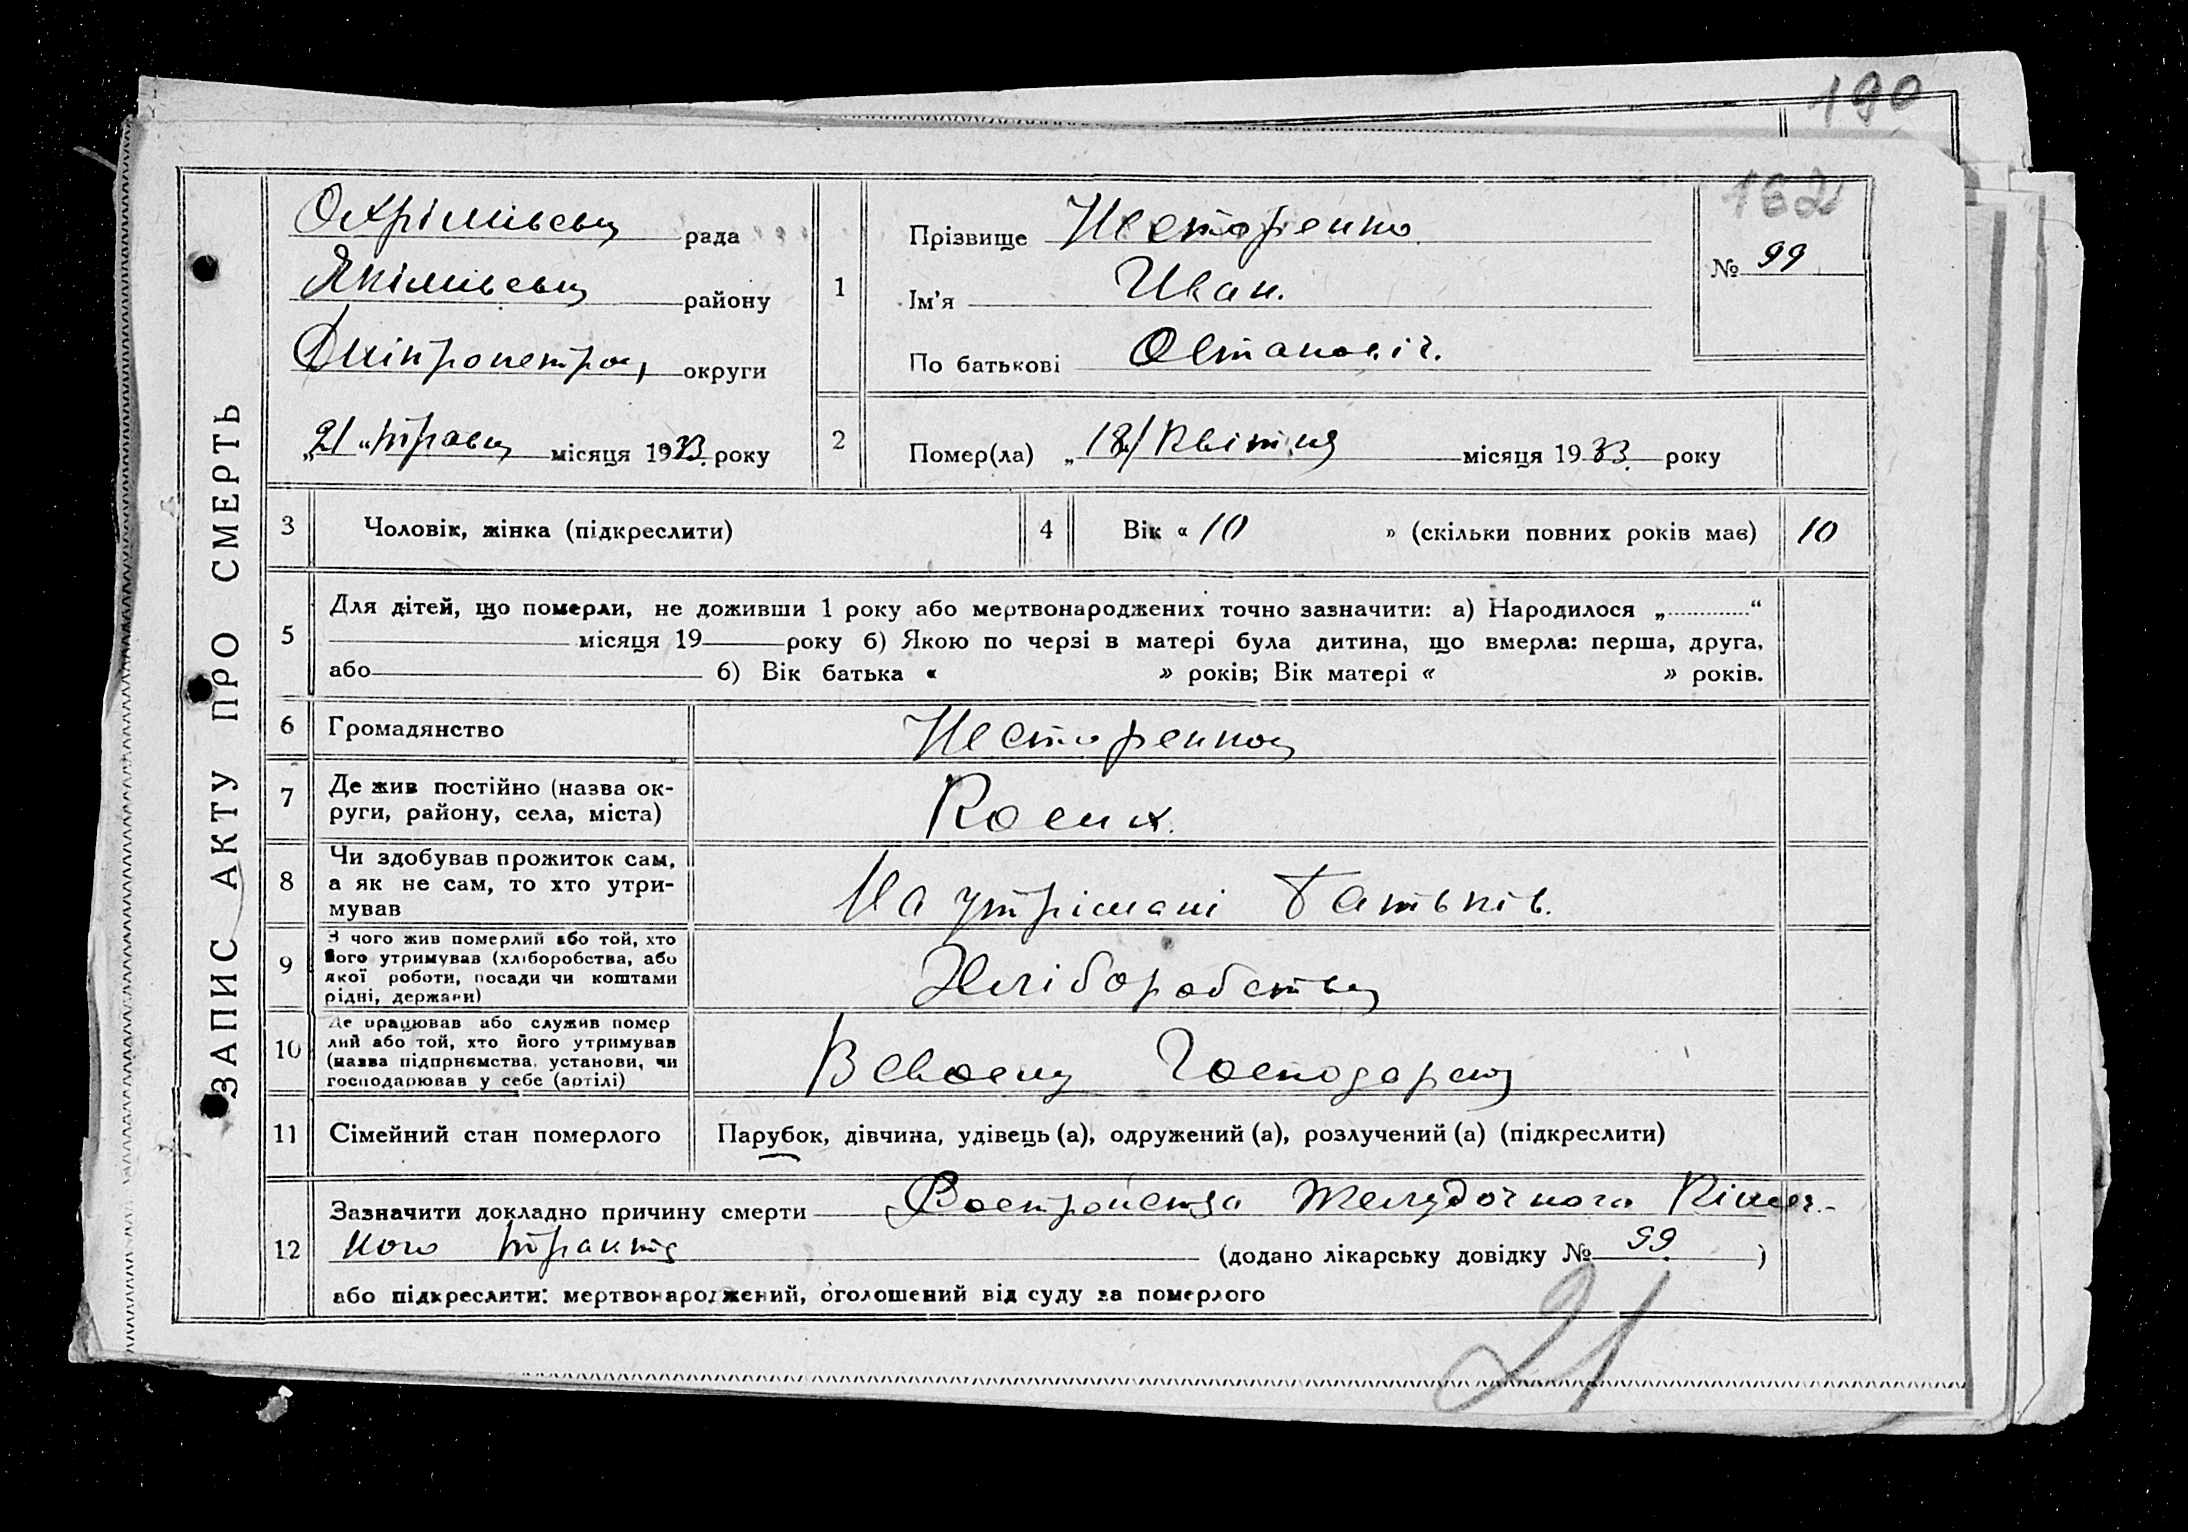 190
162
ЗАПИС АКТУ ПРО СМЕРТЬ
Охрімівськ рада
Якімівськ району
Дніпропетро, округи
„21“ травн місяця 1933 року
1
Прізвище Несторенко
Ім'я Иван.
По батькові Остапович.
№ 99
2
Помер(ла) „18/ Квітня місяця 1933. року
3 Чоловік, жінка (підкреслити)
4 Вік « 10 » (скільки повних років має) 10
5
Для дітей, що померли, не доживши 1 року або мертвонароджених точно зазначити: а) Народилося „ “
місяця 19 року б) Якою по черзі в матері була дитина, що вмерла: перша, друга,
або б) Вік батька « » років; Вік матері « » років.
6 Громадянство Несторенко
7 Де жив постійно (назва ок-
руги, району, села, міста)
8 Чи здобував прожиток сам,
а як не сам, то хто утри-
мував
На утрімані Батьків.
9 З чого жив померлий або той, хто
його утримував (хліборобства, або
якої роботи, посади чи коштами
рідні, держави)
Хліборобство
10 Де працював або служив помер
лий або той, хто його утримував
(назва підприємства, установи, чи
господарював у себе (артілі)
В своєму Господарст
11 Сімейний стан померлого Парубок, дівчина, удівець (а), одружений (а), розлучений (а) (підкреслити)
12
Зазначити докладно причину смерти Востройства Желудочного Кишеч-
ного тракта (додано лікарську довідку № 99 )
або підкреслити: мертвонароджений, оголошений від суду за померлого
21